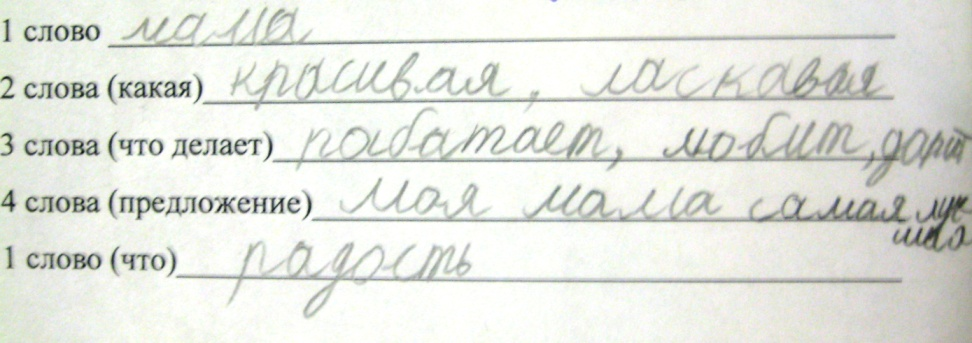 1 слово мама
2 слова (какая) красивая, ласкавая
3 слова (что делает) работает, любит, дарит
4 слова (предложение) Моя мама самая луч
шая
1 слово (что) радость